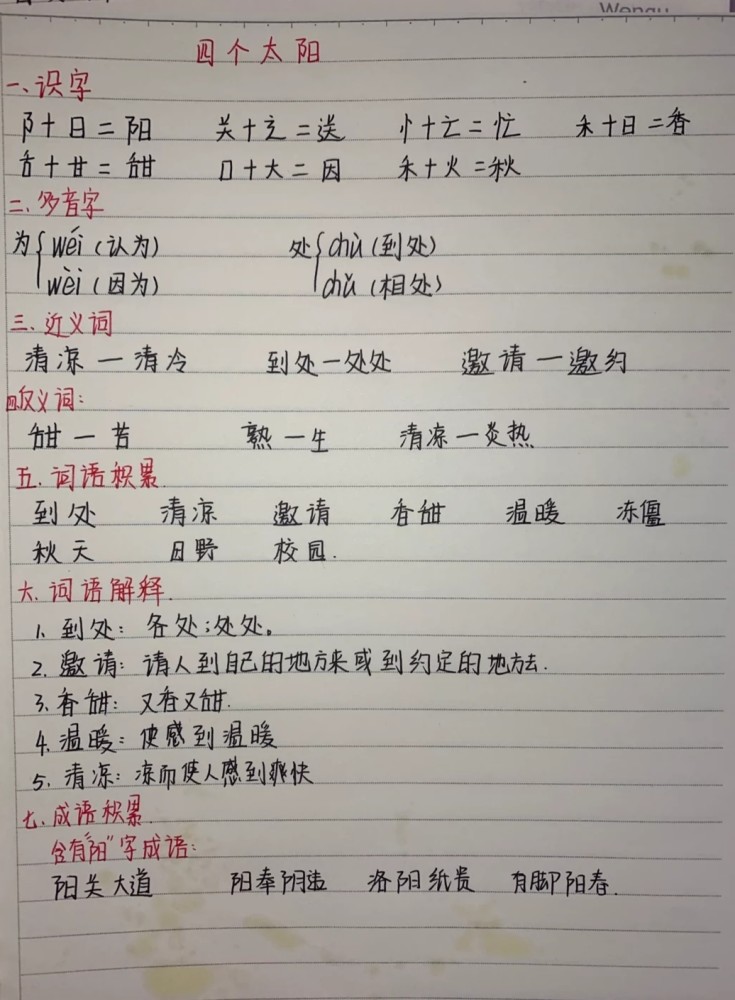 Wengu
四个太阳
一、识字
阝+日=阳 关+辶=送 忄+亡=忙 禾+日=香
舌+甘=甜 口+大=因 禾+火=秋
二、多音字
为{wéi(认为) 处{chù(到处)
wèi(因为) chǔ(相处)
三、近义词
清凉—清冷 到处—处处 邀请—邀约
四反义词:
甜—苦 熟—生 清凉—炎热
五.词语积累
到处 清凉 邀请 香甜 温暖 冻僵
秋天 田野 校园.
六.词语解释.
1.到处:各处;处处。
2.邀请:请人到自己的地方来或到约定的地方去.
3.香甜:又香又甜.
4.温暖:使感到温暖
5.清凉:凉而使人感到爽快
七.成语积累.
含有“阳”字成语:
阳关大道 阳奉阴违 洛阳纸贵 有脚阳春.